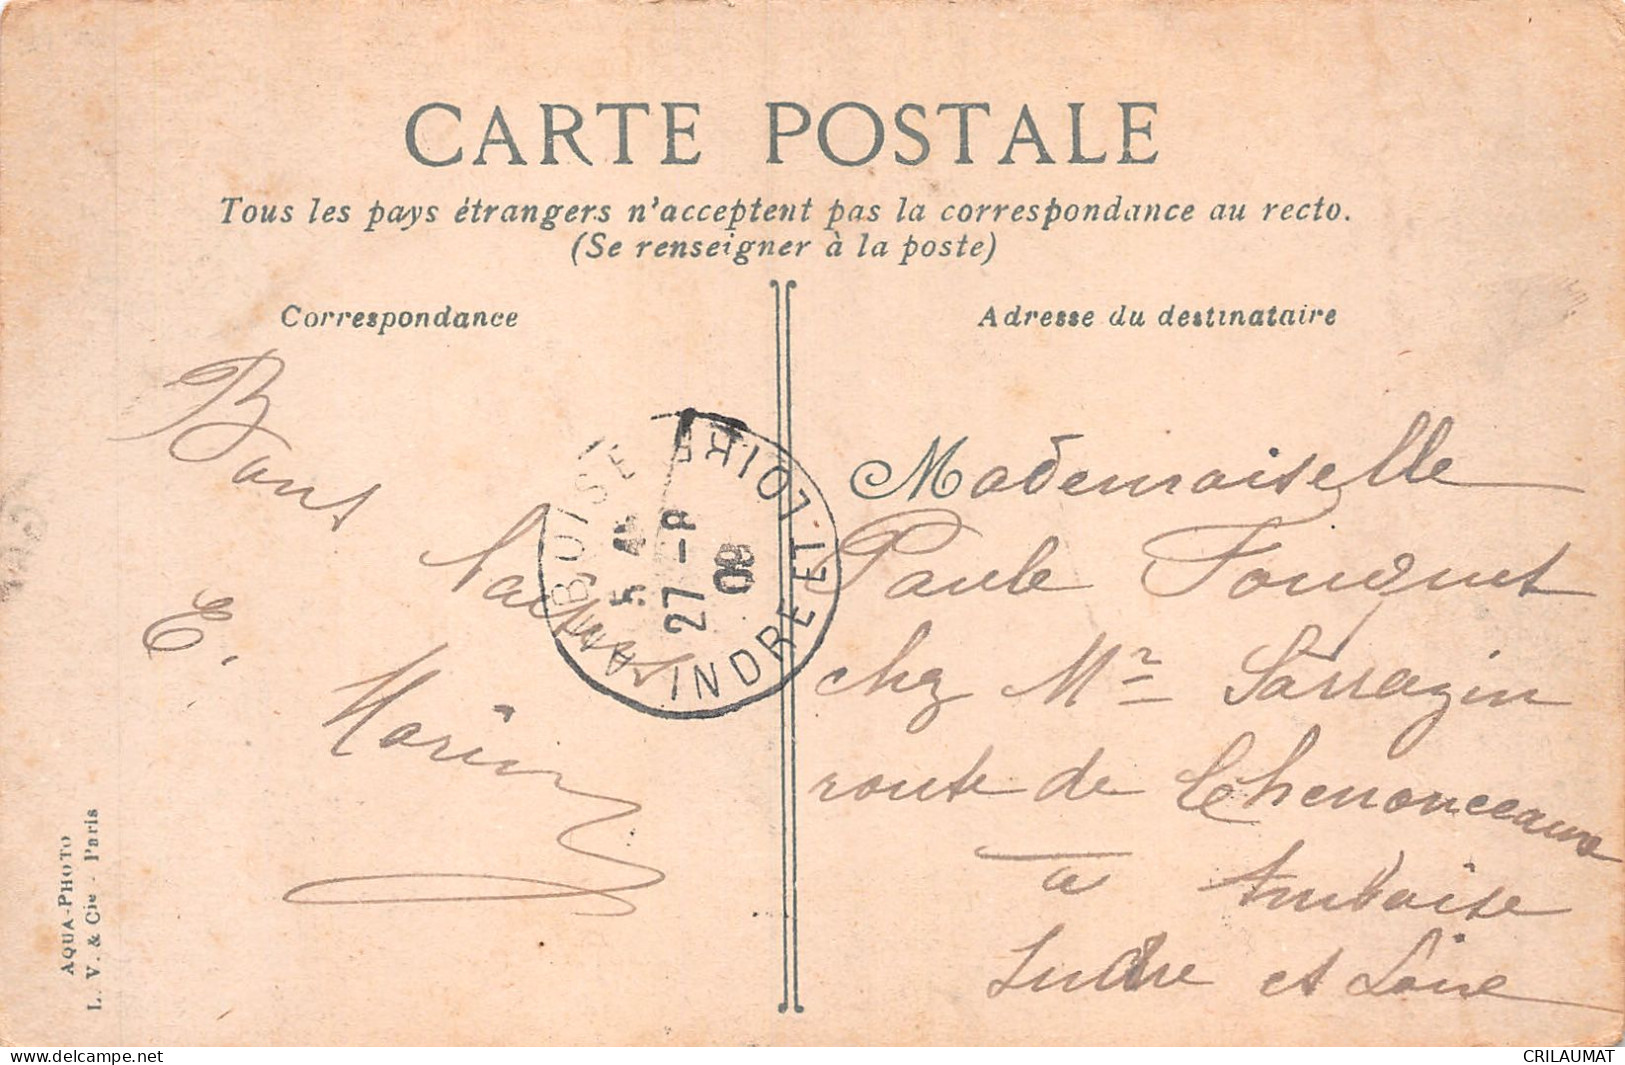 CARTE POSTALE
Tous les pays étrangers n'acceptent pas la correspondance au recto.
(Se renseigner à la poste)
Correspondance
Adresse du destinataire
Bons
E. Morin
AMBOISE
INDRE ET LOIRE
5
27 - 8
09
Mademoiselle
Paule Fouquet
chez Mr Sarrazin
route de Chenonceaux
à Amboise
Indre et Loire
AQUA-PHOTO
L. V. & Cie - Paris
delcampe.net
CRILAUMAT